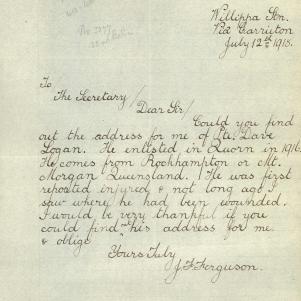 No 2977
22nd Batn
Willippa Stn.
Via Carrieton
July 12th 1918.
To
The Secretary/
Dear Sir/
Could you find
out the address for me of Pte. Dave
Logan. He enlisted in Quorn in 1916.
He comes from Rockhampton or Mt.
Morgan Queensland. He was first
reported injured & not long ago I
saw where he had been wounded.
I would be very thankful if you
could find his address for me
& oblige
Yours Fully
J. F. Ferguson.